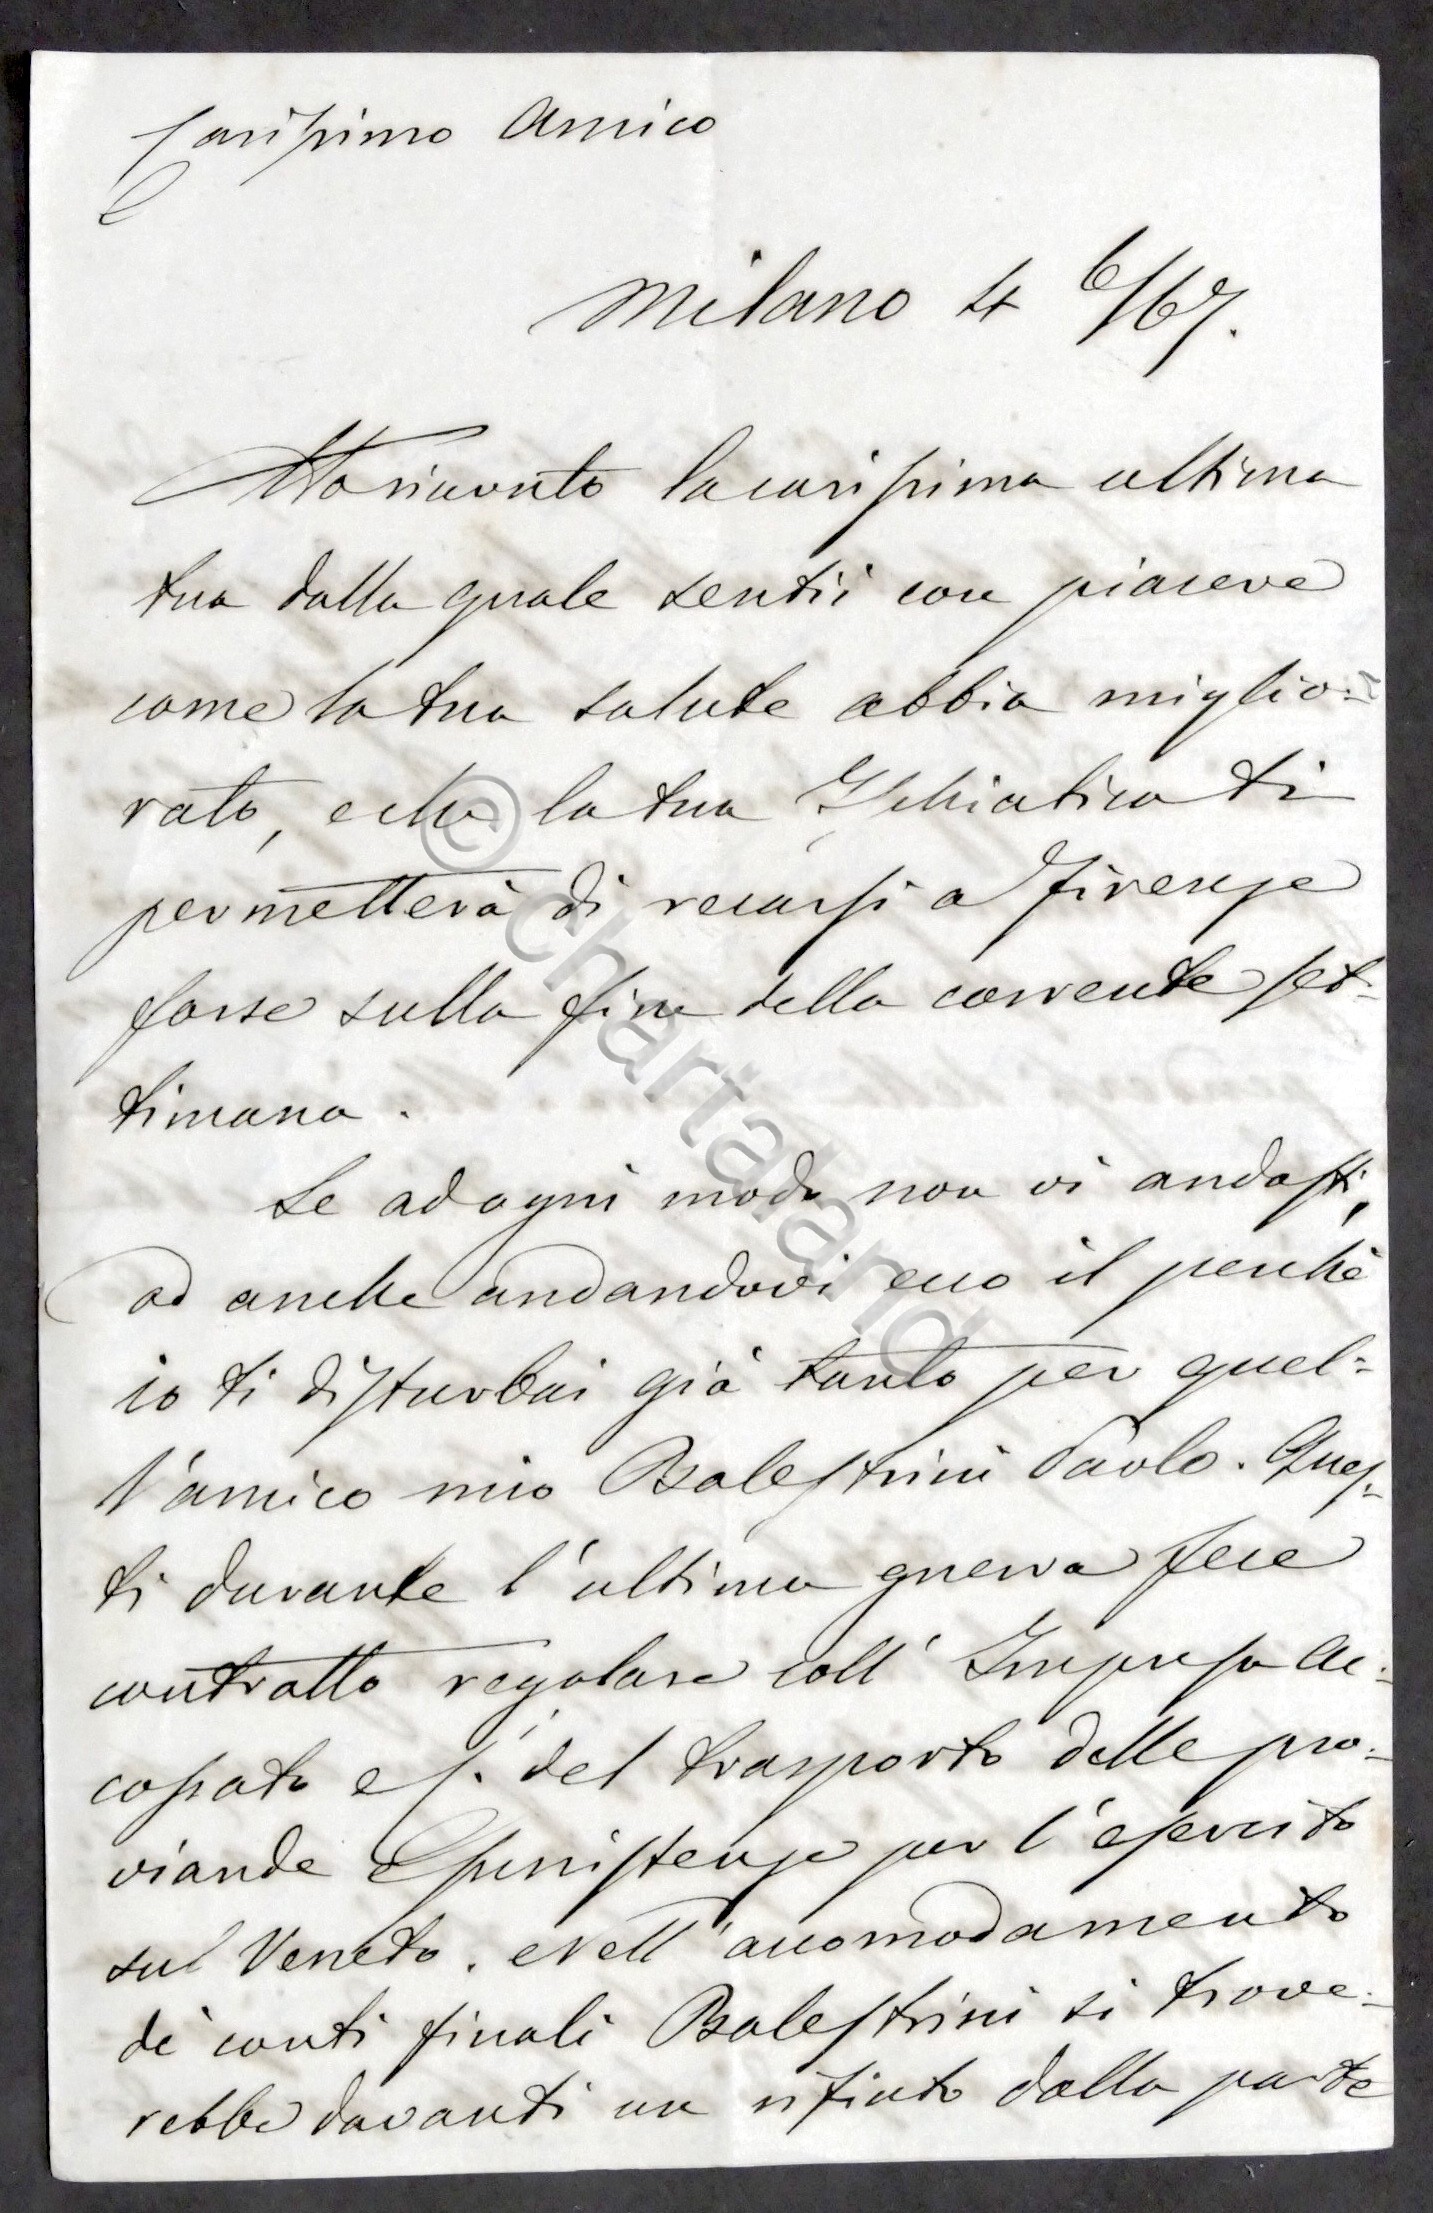 Carissimo Amico
Milano 4 6/67.
Ho ricevuto la carissima ultima
tua dalla quale sentii con piacere
come la tua salute abbia miglio-
rato, e che la tua Ischiatica ti
permetterà di recarsi a Firenze
forse sulla fine della corrente set-
timana.
Se ad ogni modo non vi andasti,
od anche andandovi ecco il perchè
io ti disturbai già tanto per quel=
l'amico mio Balestrini Paolo. Ques-
ti durante l'ultima guerra fece
contratto regolare coll' Impresa Ac-
cossato e del trasporto delle pro-
viande e sussistenze per l'esercito
sul Veneto. Nell' accomodamento
dei conti finali Balestrini si trove-
rebbe davanti un rifiuto dalla parte
© chartaland